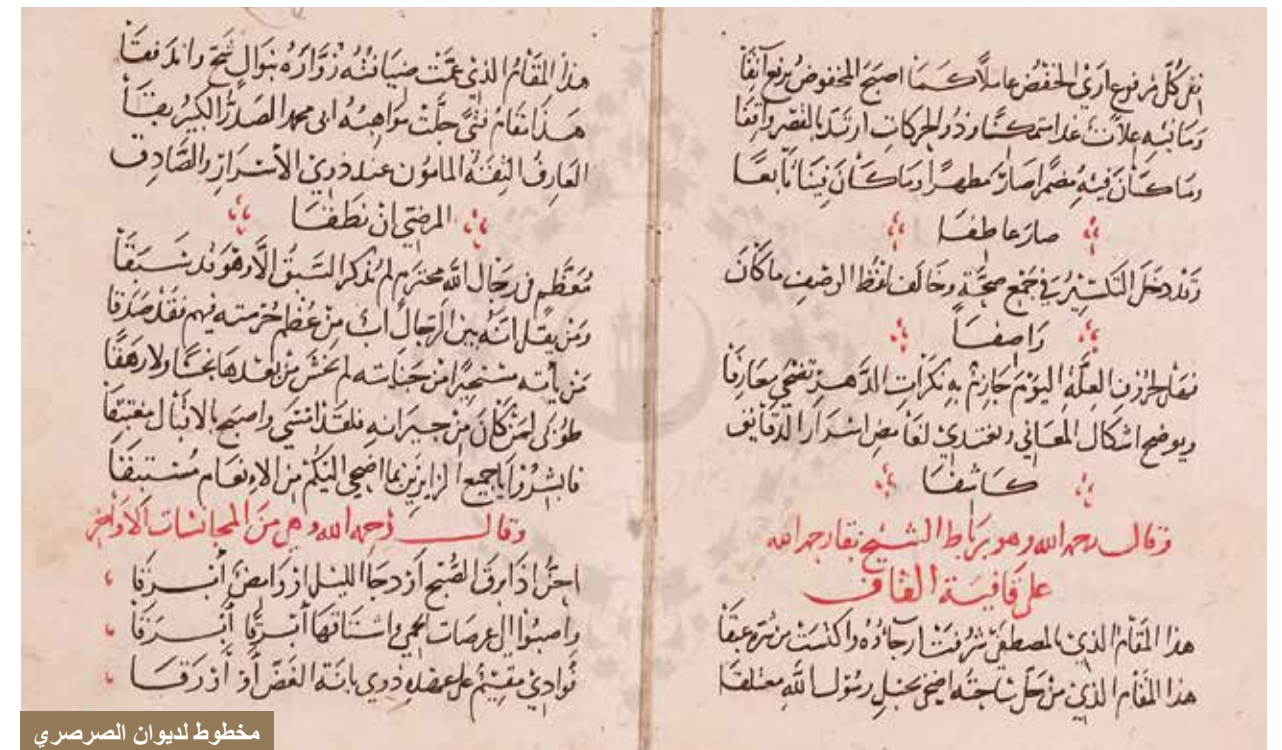 كل مرفوع اري الخفض عاملا كما اصبح المخفوض يرفع آنفا
وما فيه علات غدا متمكنا وذو الحركات ارتد بالقصر واقفا
وما كان فيه مضمرا صار مظهرا وما كان فينا تابعا
صار عاطفا
وقد دخل التكسير في جمع صحة وخالف لفظ الوصف ما كان
واصفا
العلة اليوم جازم به نكرات الدهر تضحي معارفا
ويوضح اشكال المعاني ويغتدي لغامض اسرار الدقايق
كاشفا
وقال رحمه الله وهو برباط الشيخ بقا رحمه الله
على قافية القاف
هذا المقام الذي بالمصطفى شرفت ارجاؤه واكتست من عبقا
هذا المقام الذي من حل ساحته اضحى بحبل رسول الله معتلقا
هذا المقام الذي عمت ضيافته زواره بنوال سح واندفقا
هذا مقام فتى جلت مواهبه ابى محمد الصدر الكبير بقا
العارف الثقة المامون عند ذوي الأسرار والصادق
المرضي ان نطقا
معظم في رجال الله محترم لم يذكر السبق الا وهو قد سبقا
ومن يقل انه بين الرجال اب من عظم حرمته فيهم فقد صدقا
من يأته مستجيرا من جنايته لم يخش من بعدها بخسا ولا رهقا
طوبى لمن كان من جيرانه فلقد انتشى واصبح بالاقبال مغتبقا
فابشروا يا جميع الزايرين بما اضحى اليكم من الانعام مستبقا
وقال رحمه الله وهي من المجانسات الاواخر
احن اذا برق الصبح او دجا الليل او وامض أبرقا
واصبوا الى عرصات الحمى واشتاقها أبرقا أبرقا
فوادي مقيم على عهده ذوي بانة الغض أو أورقا
مخطوط لديوان الصرصري